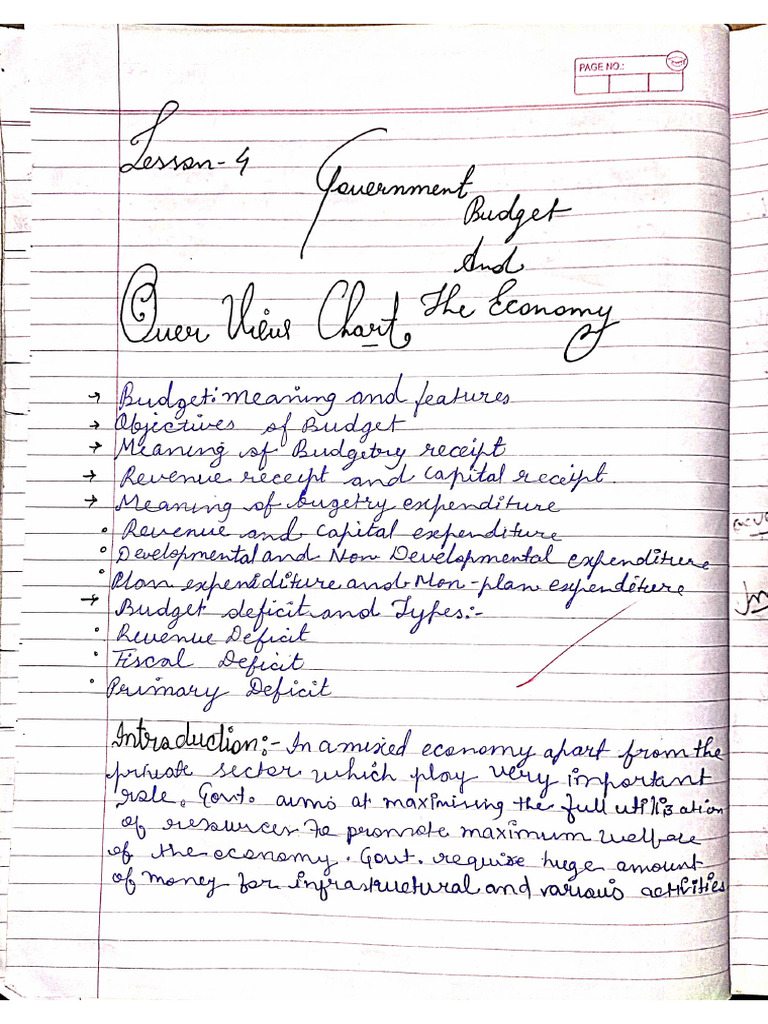 PAGE NO.:
Lesson-4
Government
Budget
And
The Economy
Over View Chart
→ Budget: meaning and features
→ Objectives of Budget
→ Meaning of Budgetry receipt
→ Revenue receipt and capital receipt.
→ Meaning of bugetry expenditure
• Revenue and capital expenditure
• Developmental and Non Developmental expenditure
• Plan expenditure and Non-plan expenditure
→ Budget deficit and Types:-
• Revenue Deficit
• Fiscal Deficit
• Primary Deficit
Introduction:- In a mixed economy apart from the
private sector which play very important
role. Govt. aims at maximising the full utilization
of resources to promote maximum welfare
of the economy. Govt. require huge amount
of money for infrastructural and various activities